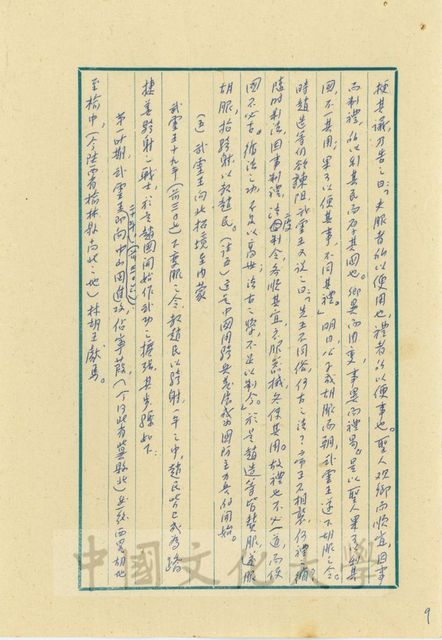 梗其議乃告之曰：「夫服者所以便用也，禮者所以便事也。聖人观鄉而順宜，因事
而制禮，所以利其民而厚其國也。鄉異而用變，事異而禮易。是以聖人果可以利其
國，不一其用，果可以便其事，不同其禮。」明日，公子成胡服而朝，武靈王遂下胡服之令。
時趙造等仍欲諫阻，武靈王又說之曰：「先王不同俗，何古之法？帝王不相襲，何禮之循？
隨時制法，因事制禮，法度制令，各順其宜，衣服器械，各便其用。故禮也不必一道，而便
國不必古。循法之功，不足以高世；法古之學，不足以制今。」於是趙造等皆賛服，遂服
胡服，招騎射以教趙民。（注五）這是中國用騎兵
（三）武靈王向北拓境至內蒙
武靈王十九年（前三０七）下變服之令，教趙民以騎射，一年之中，趙民皆已成為
捷善騎射之戰士，於是趙國開始作武功之擴張，其步驟如下：
第一時期，武靈王二十年（前三０六）即向中山國進攻，佔寧葭，（今河北省獲鹿縣北）並從西略胡地
至榆中，（今陝西省榆林縣東北之地）林胡王獻馬。
中國文化大學
9